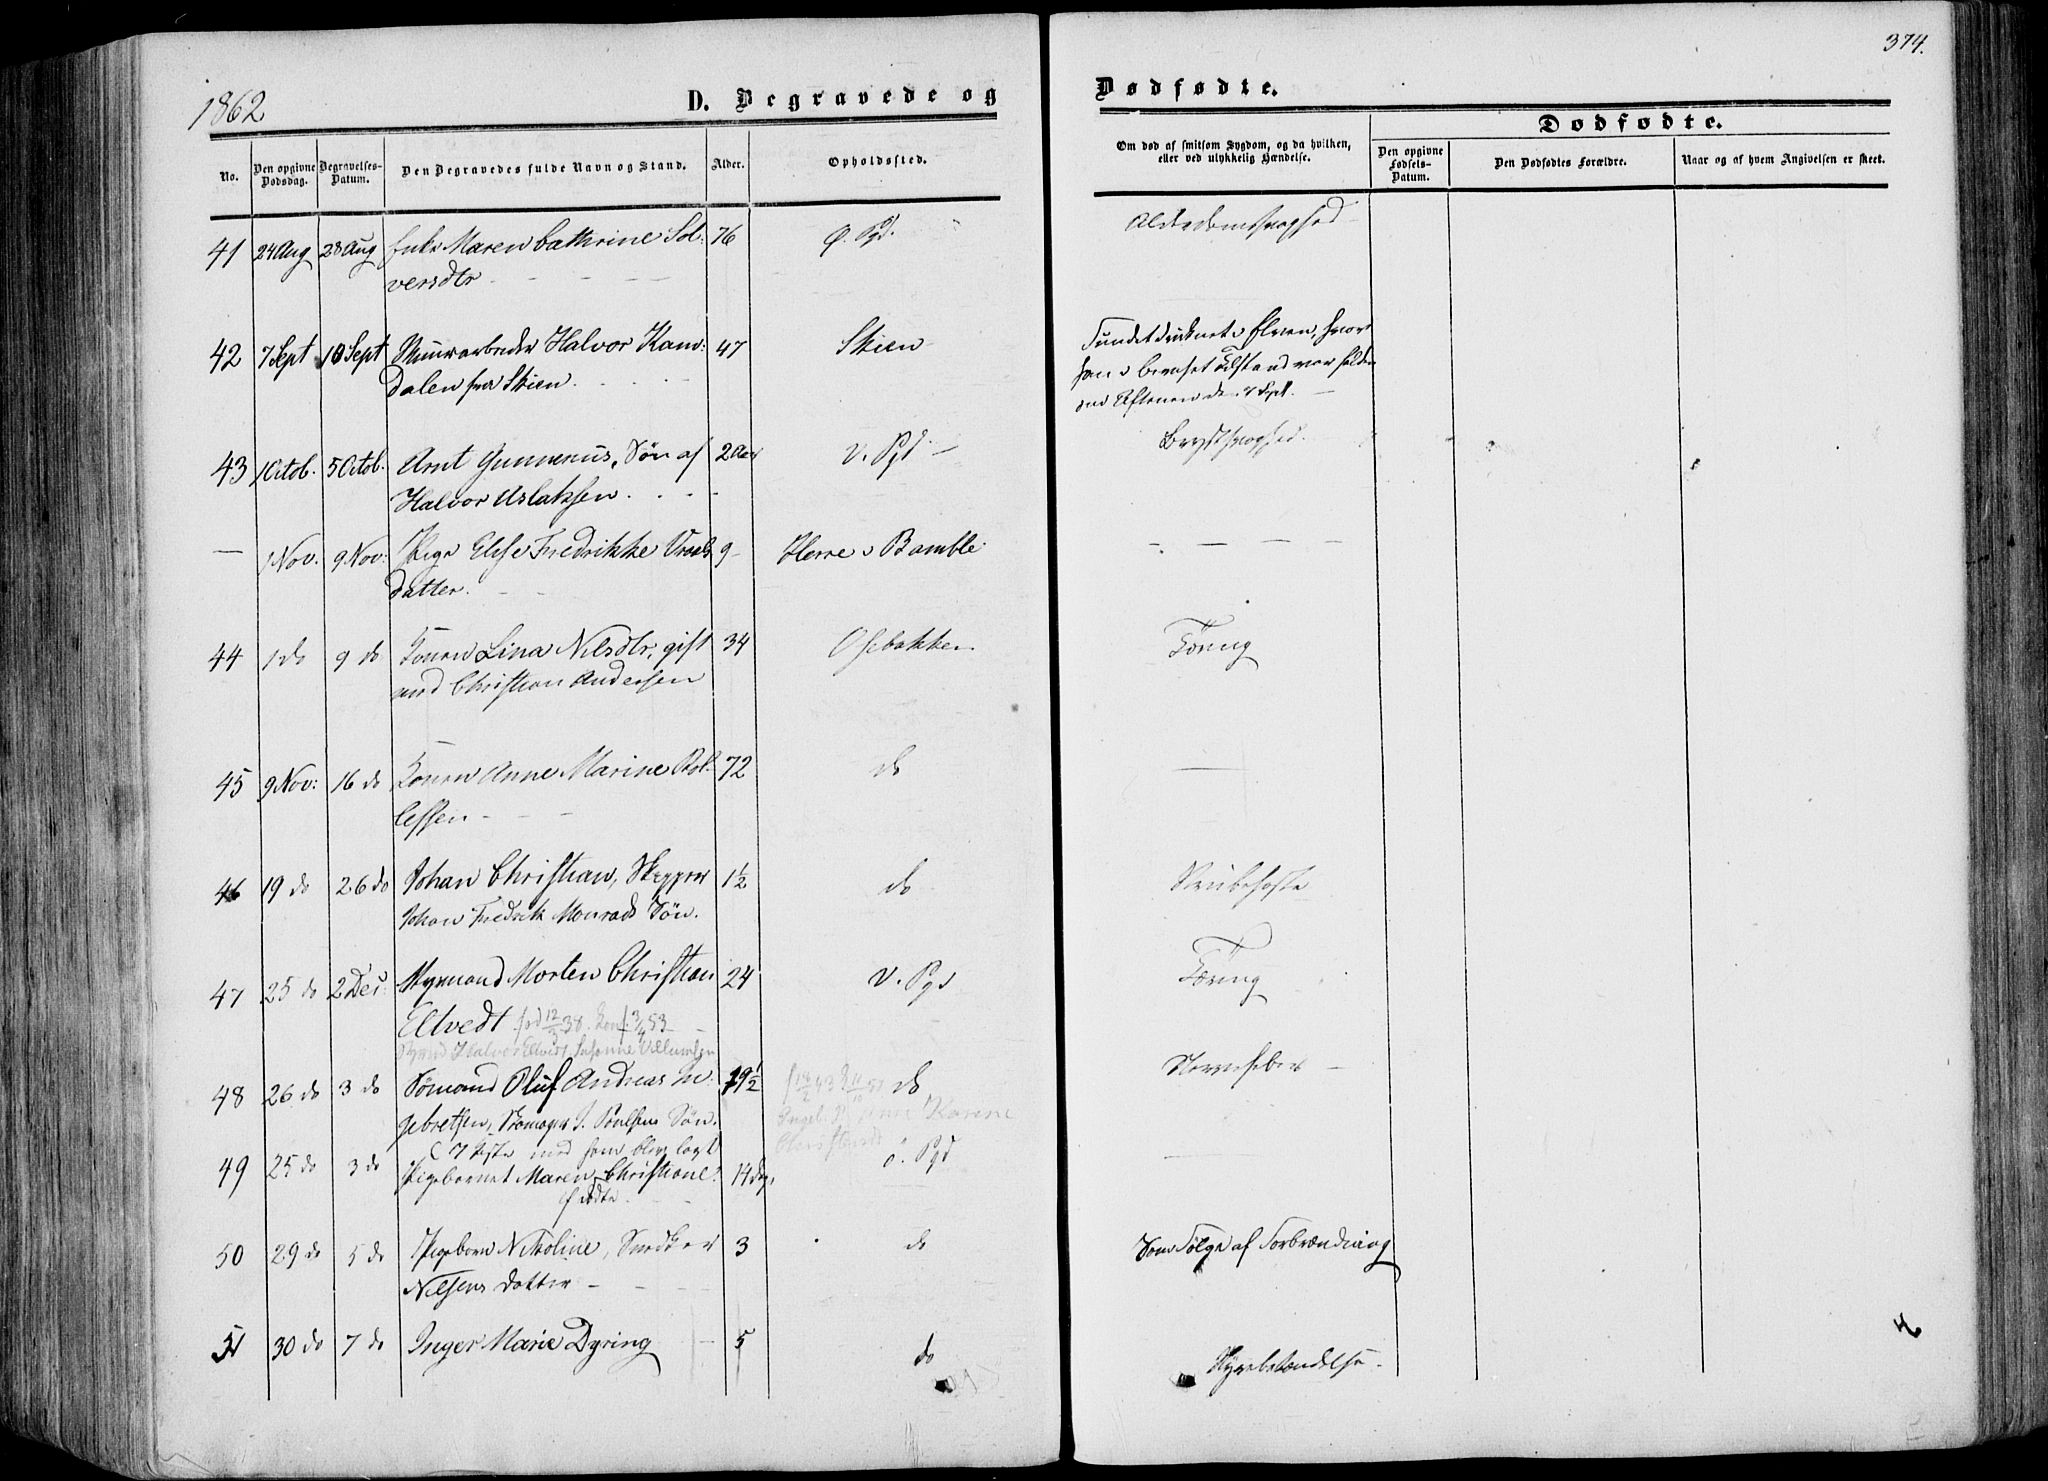 1862
D. Begravede og
Dødfødte.
374.
No.
Den opgivne Dødsdag.
Begravelses-Datum.
Den Begravedes fulde Navn og Stand.
Alder.
Opholdssted.
Om død af smitsom Sygdom, og da hvilken, eller ved ulykkelig Hændelse.
Dødfødte.
Den opgivne Fødsels-Datum.
Den Dødfødtes Forældre.
Naar og af hvem Angivelsen er skeet.
41 24 Aug 28 Aug Enke Maren Cathrine Sol- 76 Ø. Pgd. Alderdomssvaghed
versdtr
42 7 Sept 10 Sept Halvor Kam- 47 Skien Fundet druknet i Elven, hvor
dalen fra Skien. han i beruset Tilstand var falden
om Aftenen den 7 Sept.
43 1 Octob. 5 Octob. Arnt Gunnerus, Søn af 2 Aar V. Pgd Brystsvaghed.
Halvor Aslaksen.
— 1 Nov. 9 Nov: Pige Elise Fredrikke 9 Herre i Bamble
datter.
44 1 do 9 do Konen Lina Nilsdtr, gift 34 Osebakken Tæring
med Christian Andersen
45 9 Nov: 16 do Konen Anne Marine Rol- 72 do —
lefsen
46 19 do 26 do Johan Christian, Skipper 1½ do Strubehoste
Johan Fredrik Monrads Søn.
47 25 do 2 Dec: Styrmand Morten Christian 24 V. Pgd Tæring
Eltvedt fød 12/3 38. Konf. 3/4 53
Halvor Eltvedt Susanne Villumsen
48 26 do 3 do Sømand Oluf Andreas In- 19½ do Nervefeber
gebretsen, Skomager J. Poulsens Søn.
Karine
I Kiste med ham blev lagt
49 25 do 3 do Pigebarnet Maren Christiane 14 Dag. ø. Pgd
fødte.
50 29 do 5 do Pigebarn Nikoline, Snedker 3 do Som Følge af Forbrænding
Nilsens Datter
51 30 do 7 do Inger Marie Dyring 5 do